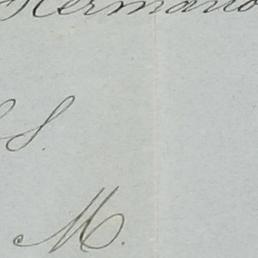 Hermano
S.
M.